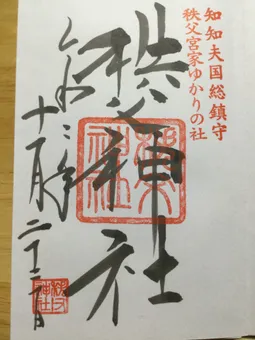 知知夫国総鎮守
秩父宮家ゆかりの社
秩父神社
令和二年
十一月二十二日